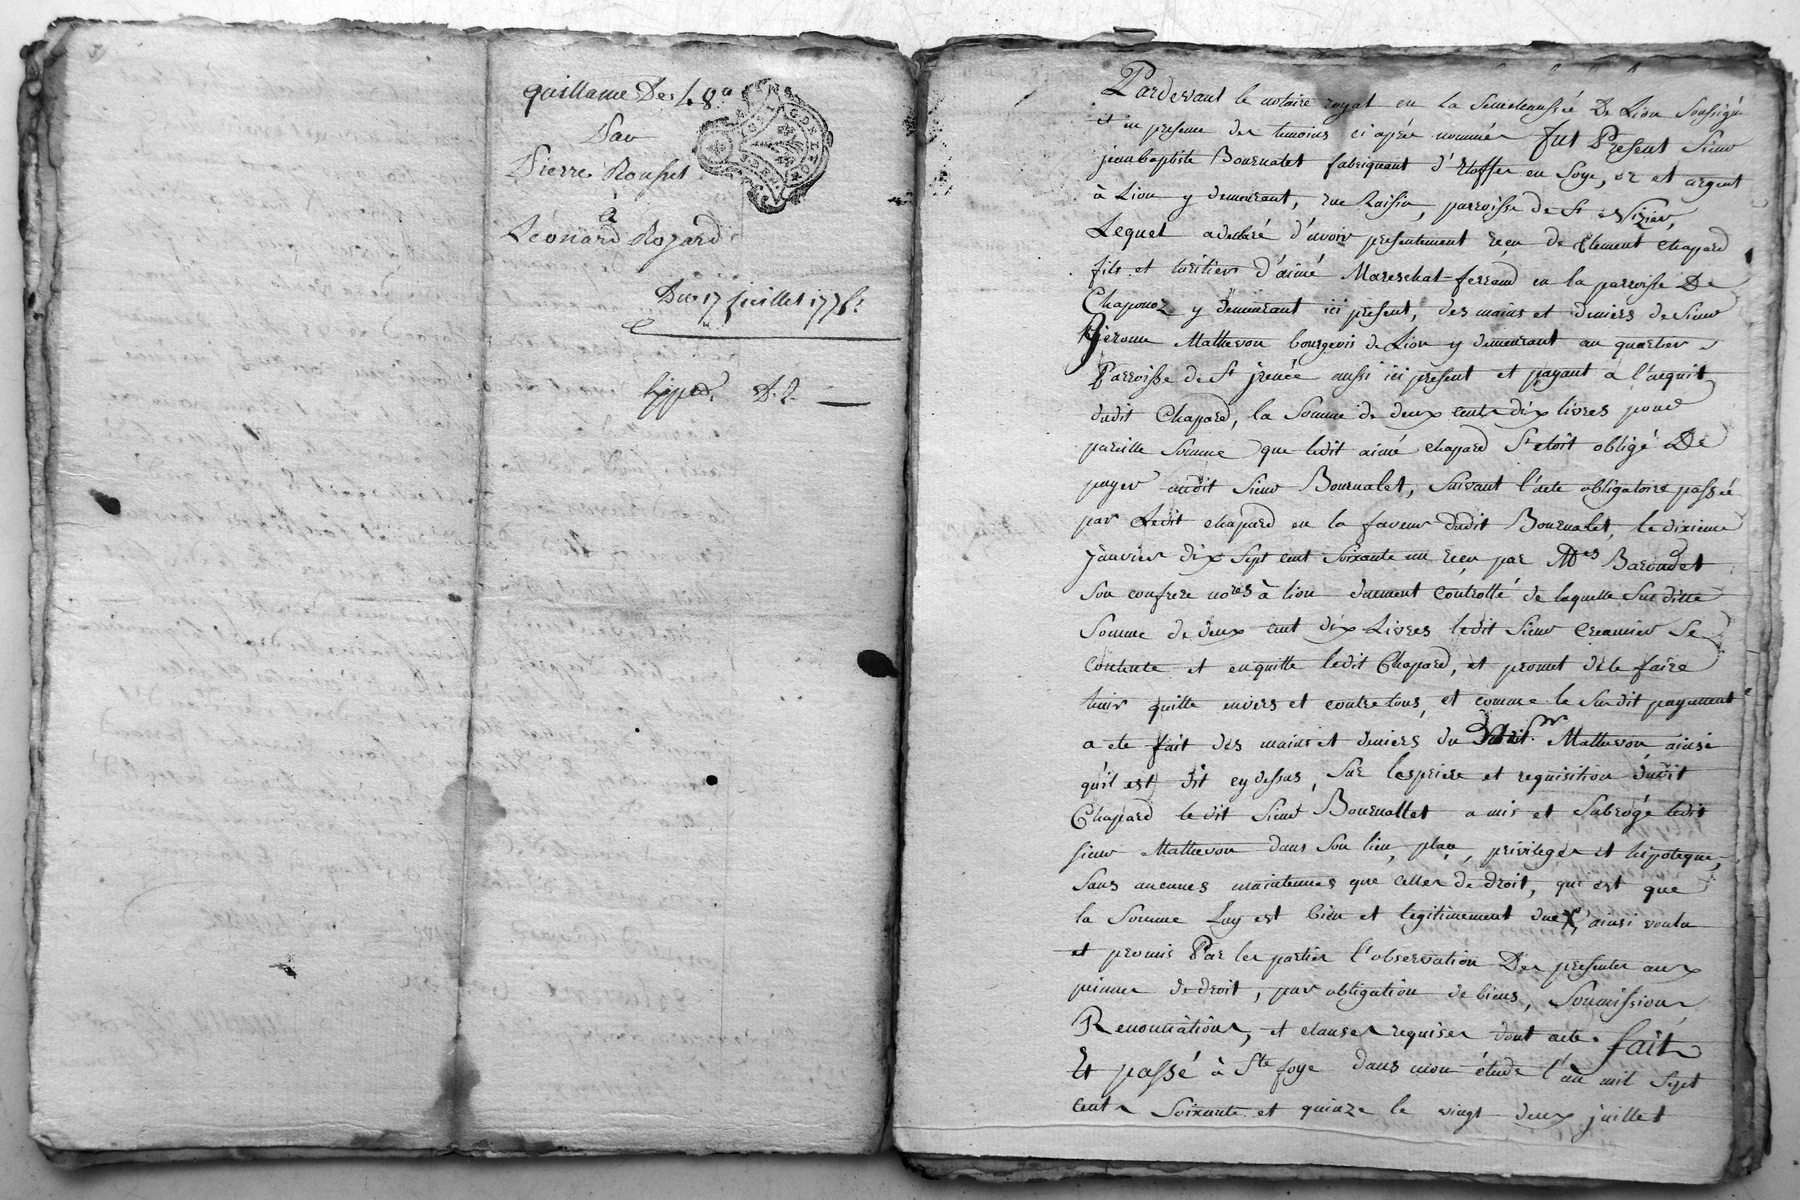 quittance De 48#
Par
Pierre Rousset
à
Léonard Rozard
Du 17 juillet 1775.
Expéd. D. L.
Pardevant le notaire royal en la Senechaussée De Lion Soussigné
et en presence des temoins ci après nommés fut Present Sieur
jeanbaptiste Bournalet fabriquant d'Etoffes en Soye, or et argent
à Lion y demeurant, rue Raisin, parroisse de St Nizier,
Lequel a declaré d'avoir presentement reçu de Clement Chapard
fils et heritier d'aimé Mareschal-ferrand en la parroisse De
Chaponoz y demeurant ici present, des mains et deniers de Sieur
jerome Mathevon bourgeois de Lion y demeurant au quartier
Parroisse de St jrenée aussi ici present et payant a l'acquit
dudit Chapard, la Somme de deux cents dix livres pour
pareille Somme que ledit aimé chapard S'etoit obligé De
payer audit Sieur Bournalet, Suivant l'acte obligatoire passée
par Ledit chapard en la faveur dudit Bournalet, le dixieme
janvier dix Sept cent Soixante un reçu par Mes Baroudet
Son confrere nores à lion duement Controllé de laquelle Sus ditte
Somme de deux cent dix Livres ledit Sieur Creancier Se
Contente et en quitte ledit Chapard, et promet de le faire
tenir quitte envers et contre tous, et comme le Sus dit payement
a ete fait des mains et deniers du dit Sr Mathevon ainsi
qu'il est dit cy dessus, Sur les priere et requisition dudit
Chapard le dit Sieur Bournallet a mis et Subrogé ledit
sieur Mathevon dans Son lieu, place, privileges et hipoteque,
Sans aucunes maintenues que celles de droit, qui est que
la Somme Luy est bien et legitimement due, ainsi voulu
et promis Par les parties l'observation Des presentes aux
peinnes de droit, par obligation de biens, Soumissions
Renonciations, et clauses requises dont acte. fait
Et passé à Ste foye dans mon étude l'an mil Sept
cents Soixante et quinze le vingt deux juillet